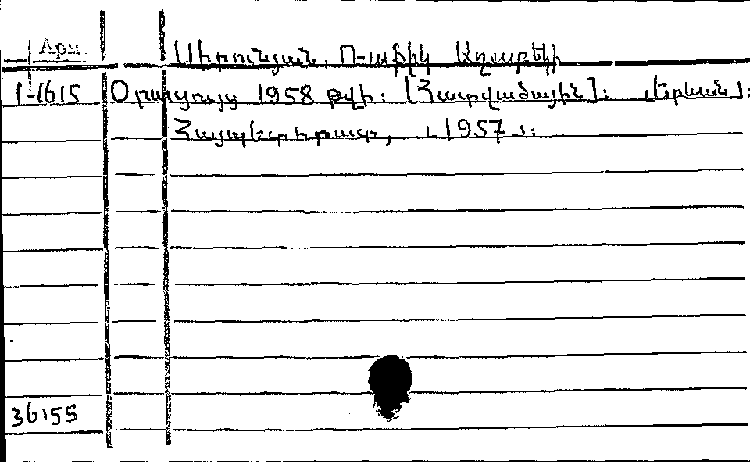 Արս.
Սիրունյան, Ռաֆիկ Աղաբեկի
1-1615 Օրացույց 1958 թվի: [Հատվածային]: [Երևան]:
Հայպետհրատ, [1957]:
36155